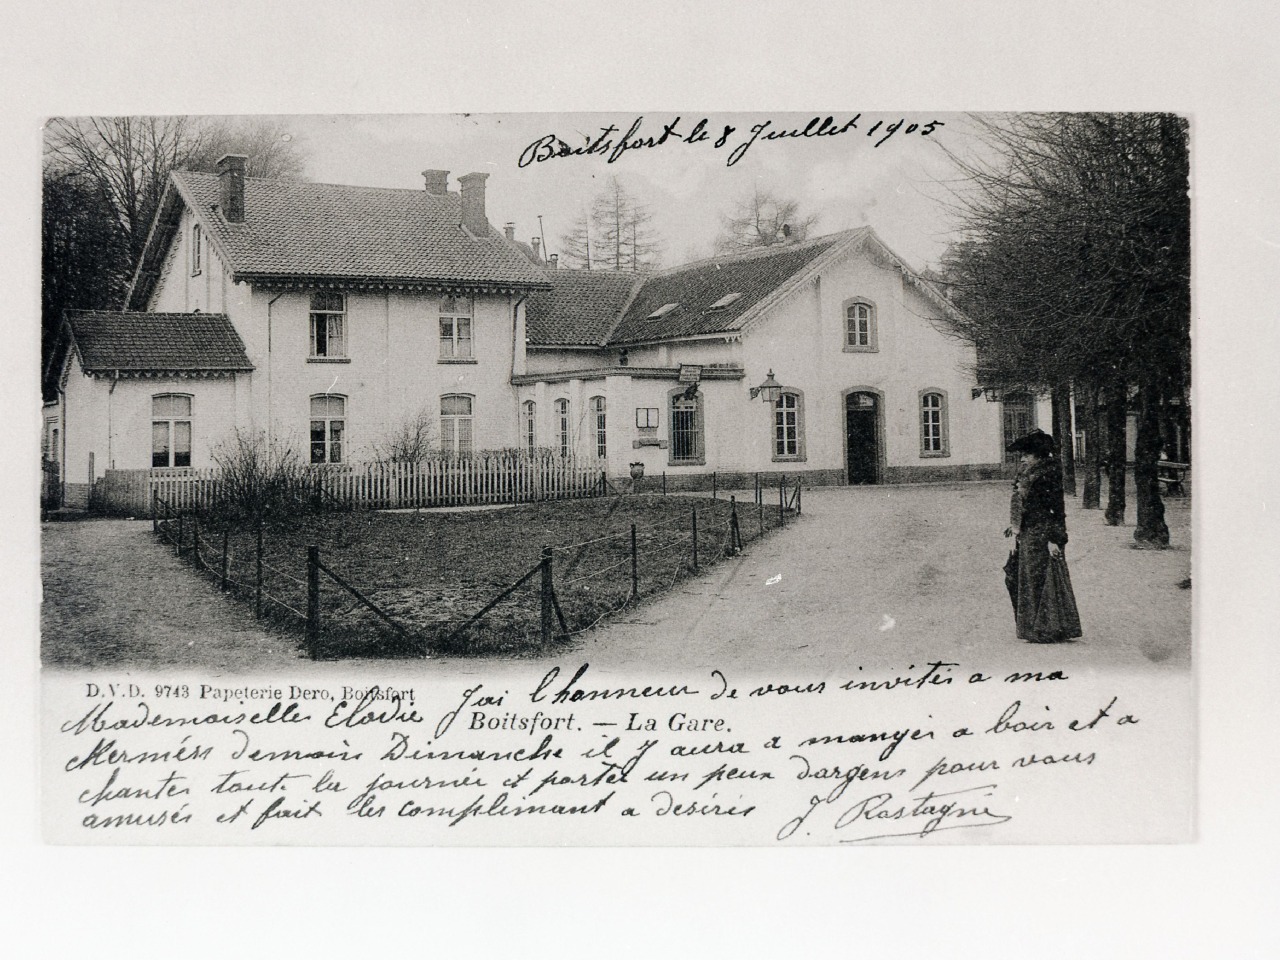 Boitsfort le 8 Juillet 1905
D.V.D. 9743 Papeterie Dero, Boitsfort
Boitsfort. — La Gare.
Mademoiselle Elodie J'ai l'honneur de vous invités a ma
Kermés demain Dimanche il y aura a manger a boir et a
chantes tout la journée et portée un peux d'argens pour vous
amusés et fait les complimant a desiris J. Rastagni